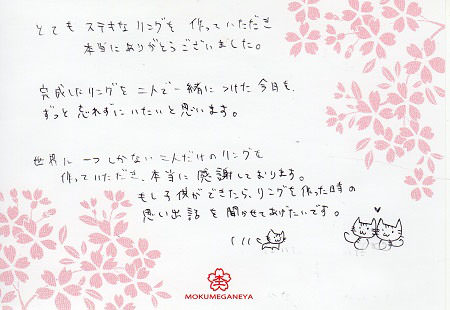 とても ステキな リングを 作っていただき
本当にありがとうございました。
完成したリングを 二人で一緒に つけた 今日を、
ずっと 忘れずに いたいと 思います。
世界に 一つ しかない 二人だけの リングを
作っていただき、本当に 感謝しております。
もし子供ができたら、リングを作った時の
思い出話 を 聞かせてあげたいです。
MOKUMEGANEYA